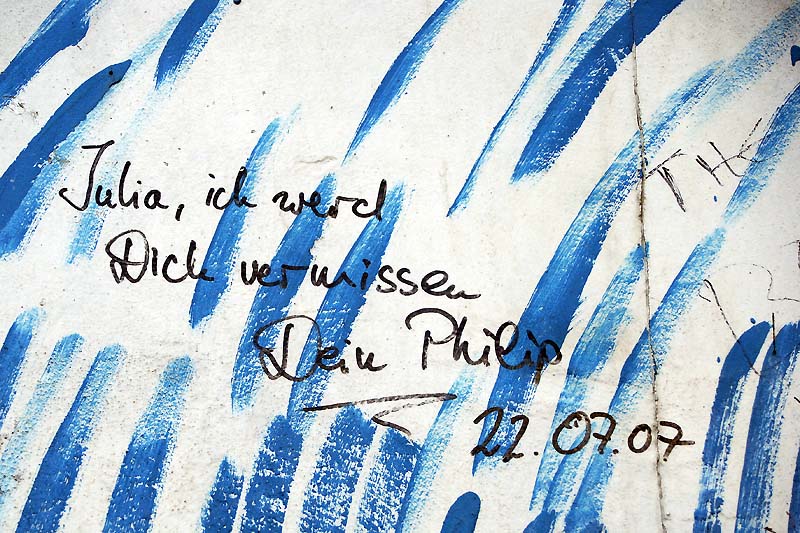 Julia, ich werd
Dich vermissen
Dein Philip
22.07.07
TH